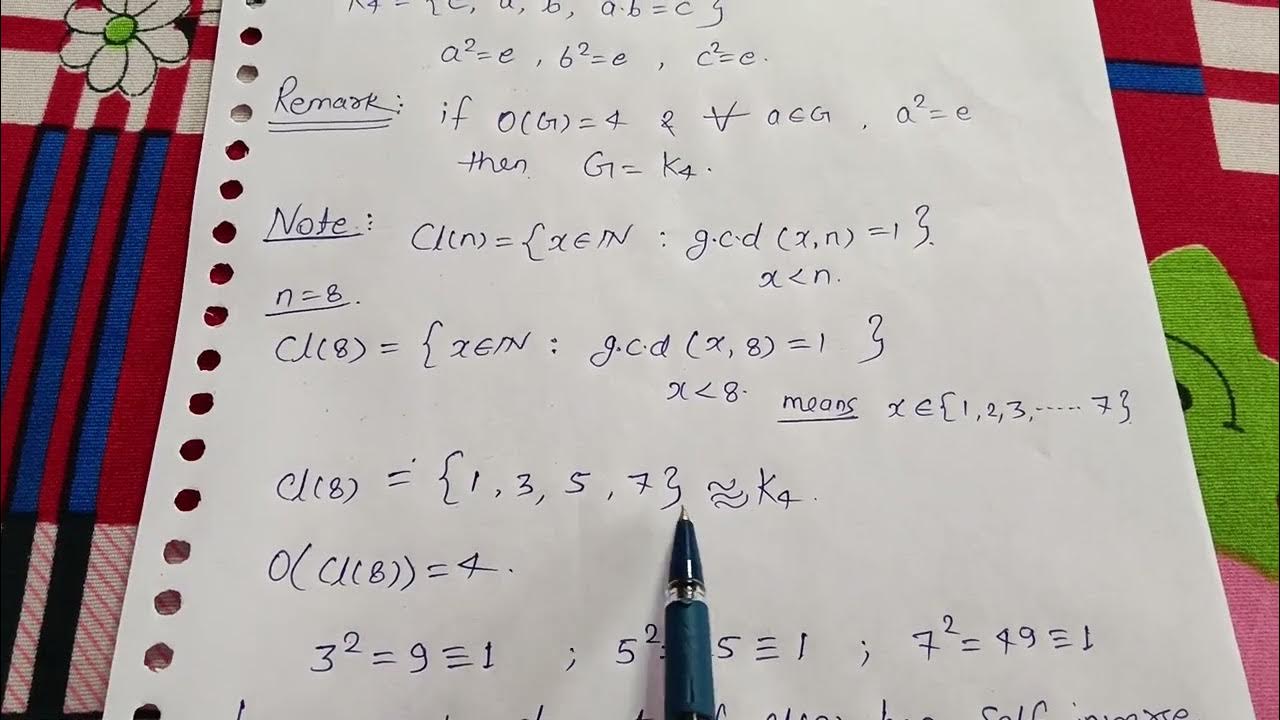 K₄ = {e, a, b, a·b = c}
a² = e , b² = e , c² = e.
Remark: if O(G) = 4 & ∀ a∈G , a² = e
then G = K₄.
Note: U(n) = {x∈ℕ : g.c.d (x, n) = 1}.
x < n.
n = 8.
U(8) = {x∈ℕ : g.c.d (x, 8) = 1 }
x < 8. means x ∈ {1, 2, 3, ..... 7}
U(8) = {1, 3, 5, 7} ≈ K₄.
O(U(8)) = 4.
3² = 9 ≡ 1 ; 5² 5 ≡ 1 ; 7² = 49 ≡ 1
self inverse